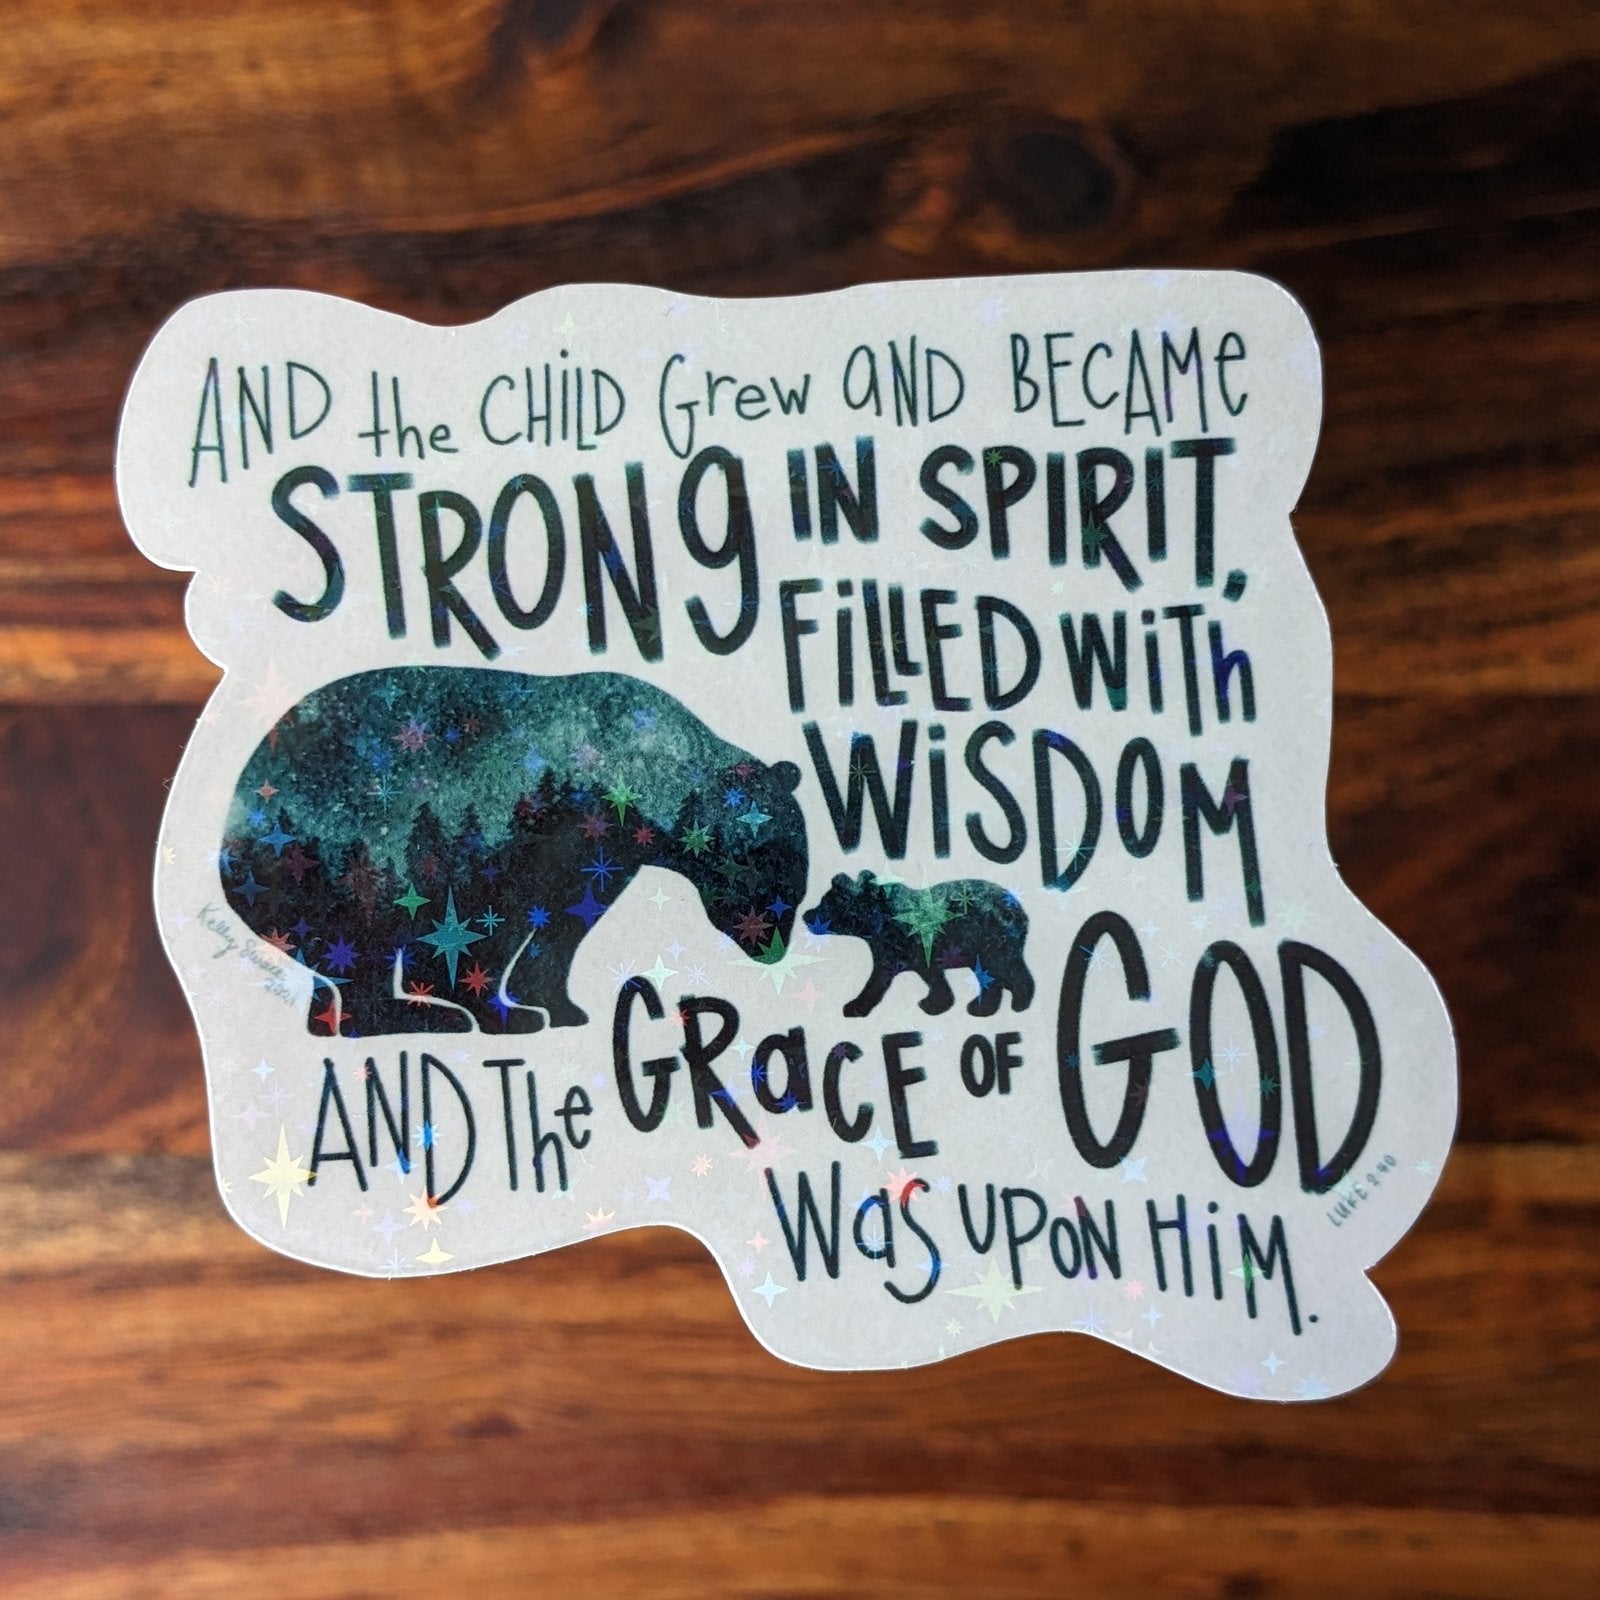 AND the CHiLD Grew aND BECAMe
STRONg IN SPIRIT,
FiLLED WiTh
WiSDOM
AND The GRaCE OF GOD
WaS UPON HiM.
LUKE 2:40
Kelly
2021